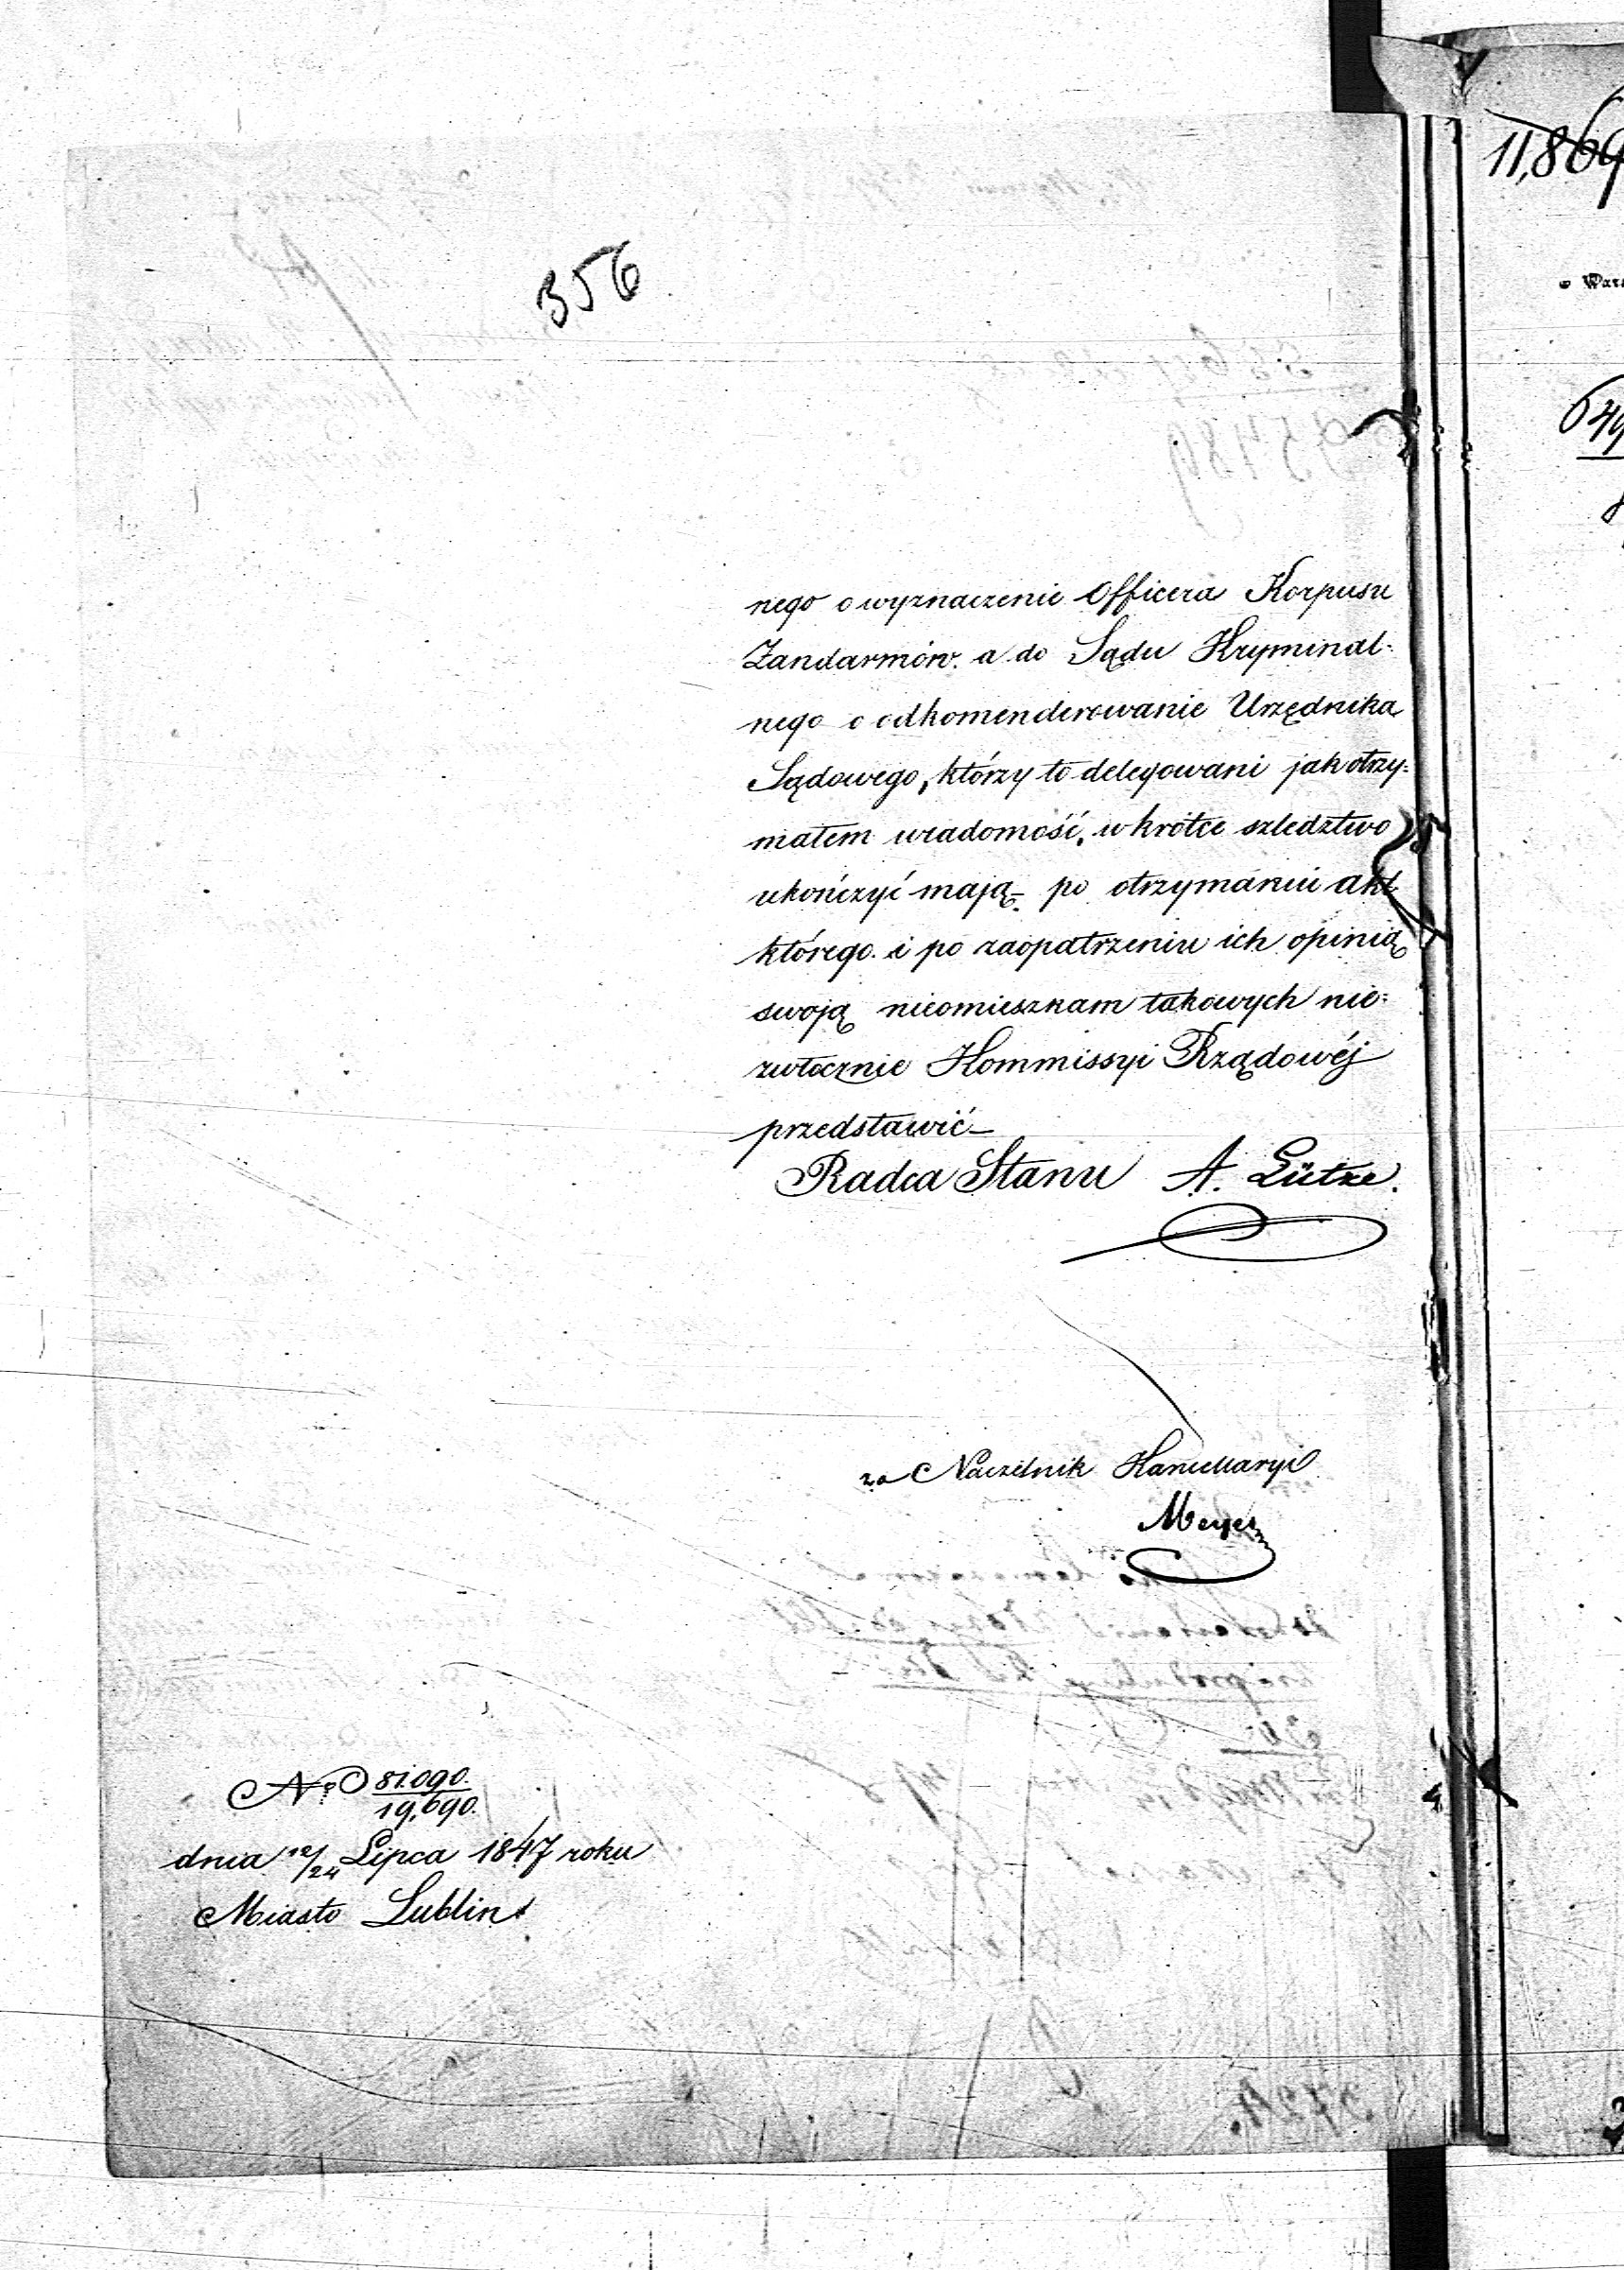 356
nego o wyznaczenie Officera Korpusu
Żandarmów. a do Sądu Kryminal=
nego o odkomenderowanie Urzędnika
Sądowego, którzy to delegowani jak otrzy=
małem wiadomość, w krótce szledztwo
ukończyć mają – po otrzymaniu akt
którego i po zaopatrzeniu ich opinią
swoją nieomieszkam takowych nie=
zwłocznie Kommissyi Rządowéj
przedstawić –
Radca Stanu A. Lütze.
za Naczelnik Kancellaryi
Meyer
No 81.090.
19,690.
dnia 12/24 Lipca 1847 roku
Miasto Lublin
11,869